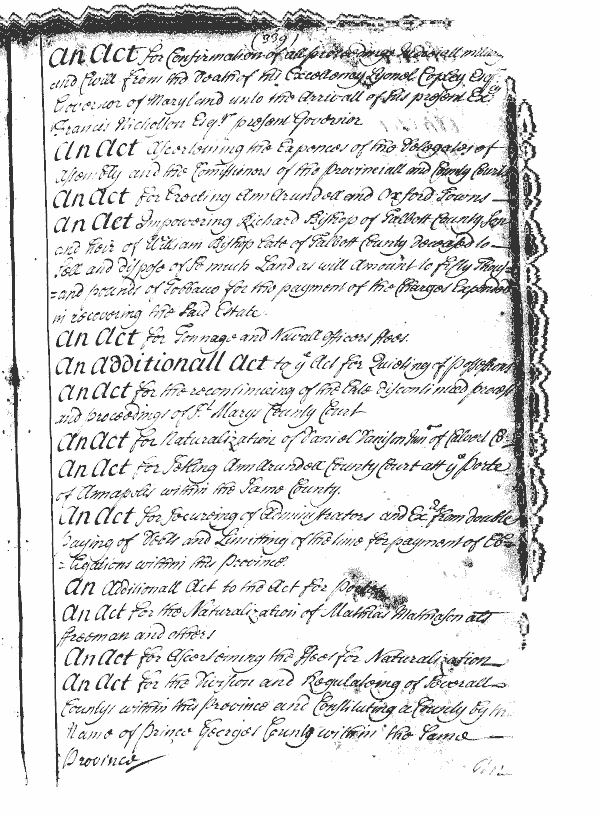 (339)
An Act for Confirmation of all proceedings Judiciall military
and Civill from the Death of his Excellency Lyonel Copley Esqr
Governor of Maryland unto the Arrivall of his present Exy
Francis Nicholson Esqr present Governor
An Act Ascertaining the Expences of the Delegates of
Assembly and the Comissioners of the Provinciall and County Courts
An Act for Erecting Ann Arundell and Oxford Towns
An Act Impowering Richard Bishop of Talbott County Son
and heir of William Bishop late of Talbott County deceased to
Sell and dispose of so much Land as will Amount to fifty Thou=
=sand pounds of Tobacco for the payment of the Charges Expended
in recovering the said Estate.
An Act for Tonnage and Navall officers ffees.
An Additionall Act to ye Act for Quieting of Possessions
An Act for the recontinueing of the late discontinued process
and proceedings of St Marys County Court
An Act for Naturalization of Daniel Danison Junr of Calvert Co:
An Act for Setling Ann Arundell County Court att ye Porte
of Annapolis within the same County.
An Act for secureing of Administrators and Exrs from double
paying of Debts and Limitting of the time for payment of Ob=
=ligations within this Province.
An Additionall Act to the Act for Ports
An Act for the Naturalization of Mathias Mathiason als
ffreeman and others
An Act for Ascertaining the ffees for Naturalization
An Act for the Division and Regulateing of Severall
Countys within this Province and Constituting a County by the
Name of Prince Georges County within the same
Province